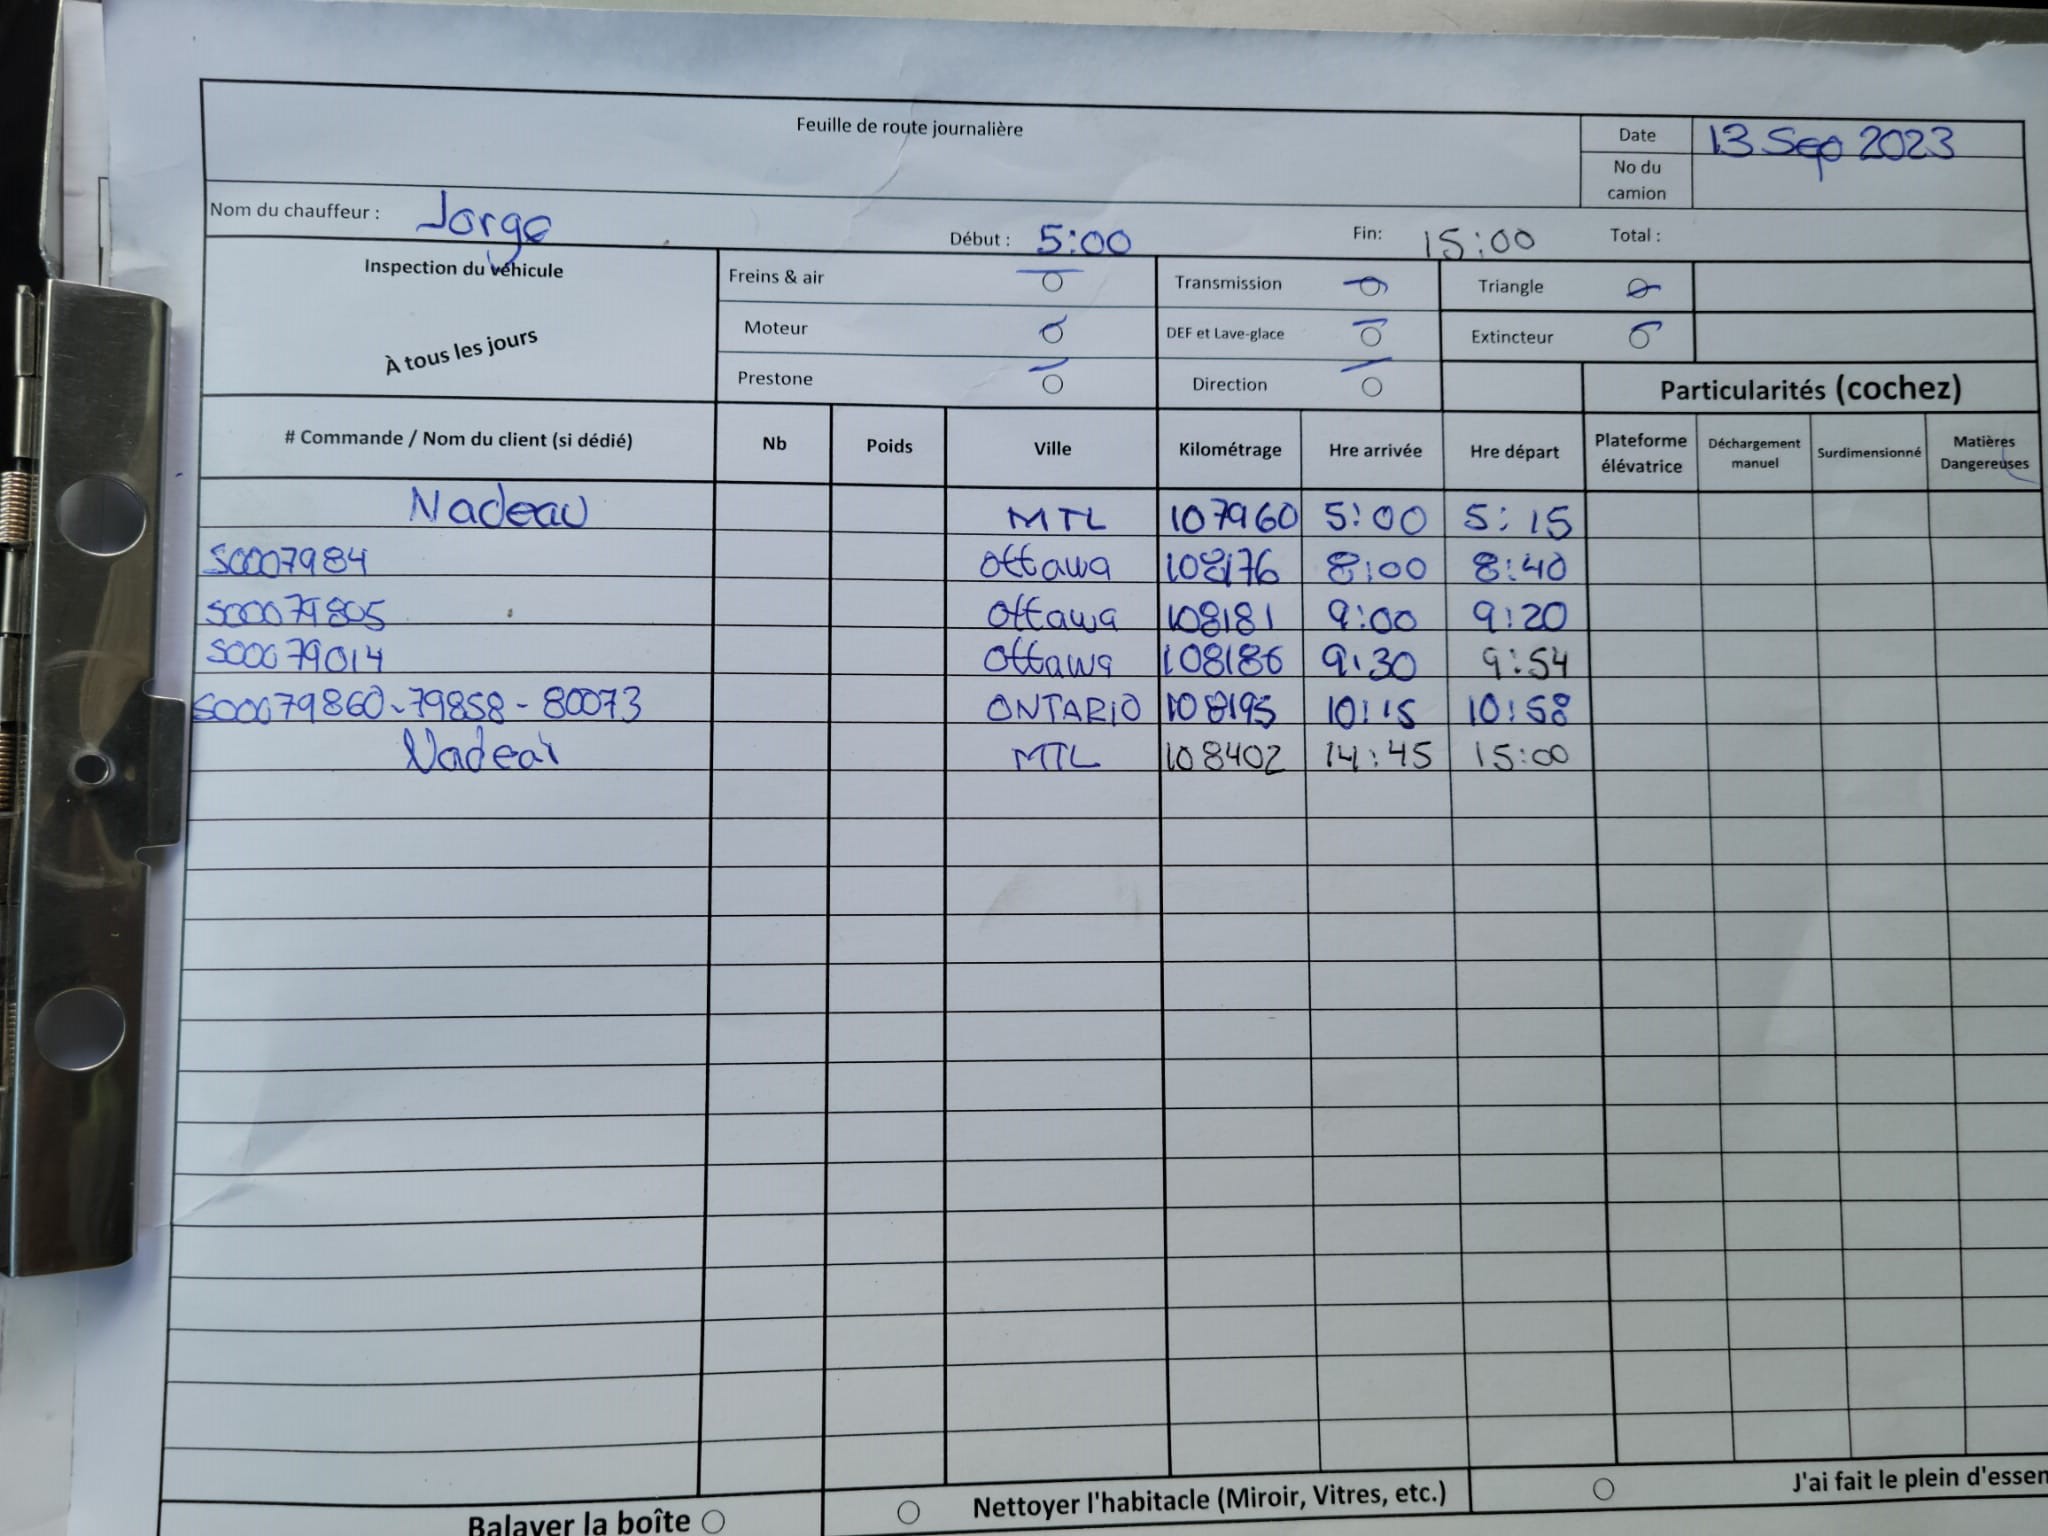 Feuille de route journalière
Date 13 Sep 2023
No du camion
Nom du chauffeur : Jorge Début : 5:00 Fin: 15:00 Total :
Inspection du véhicule
À tous les jours
Freins & air Transmission Triangle
Moteur DEF et Lave-glace Extincteur
Prestone Direction
Particularités (cochez)
# Commande / Nom du client (si dédié) Nb Poids Ville Kilométrage Hre arrivée Hre départ Plateforme élévatrice Déchargement manuel Surdimensionné Matières Dangereuses
Nadeau MTL 107960 5:00 5:15
S0007984 Ottawa 108176 8:00 8:40
S00079805 Ottawa 108181 9:00 9:20
S00079014 Ottawa 108186 9:30 9:54
S00079860-79858-80073 ONTARIO 108195 10:15 10:58
Nadeau MTL 108402 14:45 15:00
Balayer la boîte Nettoyer l'habitacle (Miroir, Vitres, etc.) J'ai fait le plein d'essen